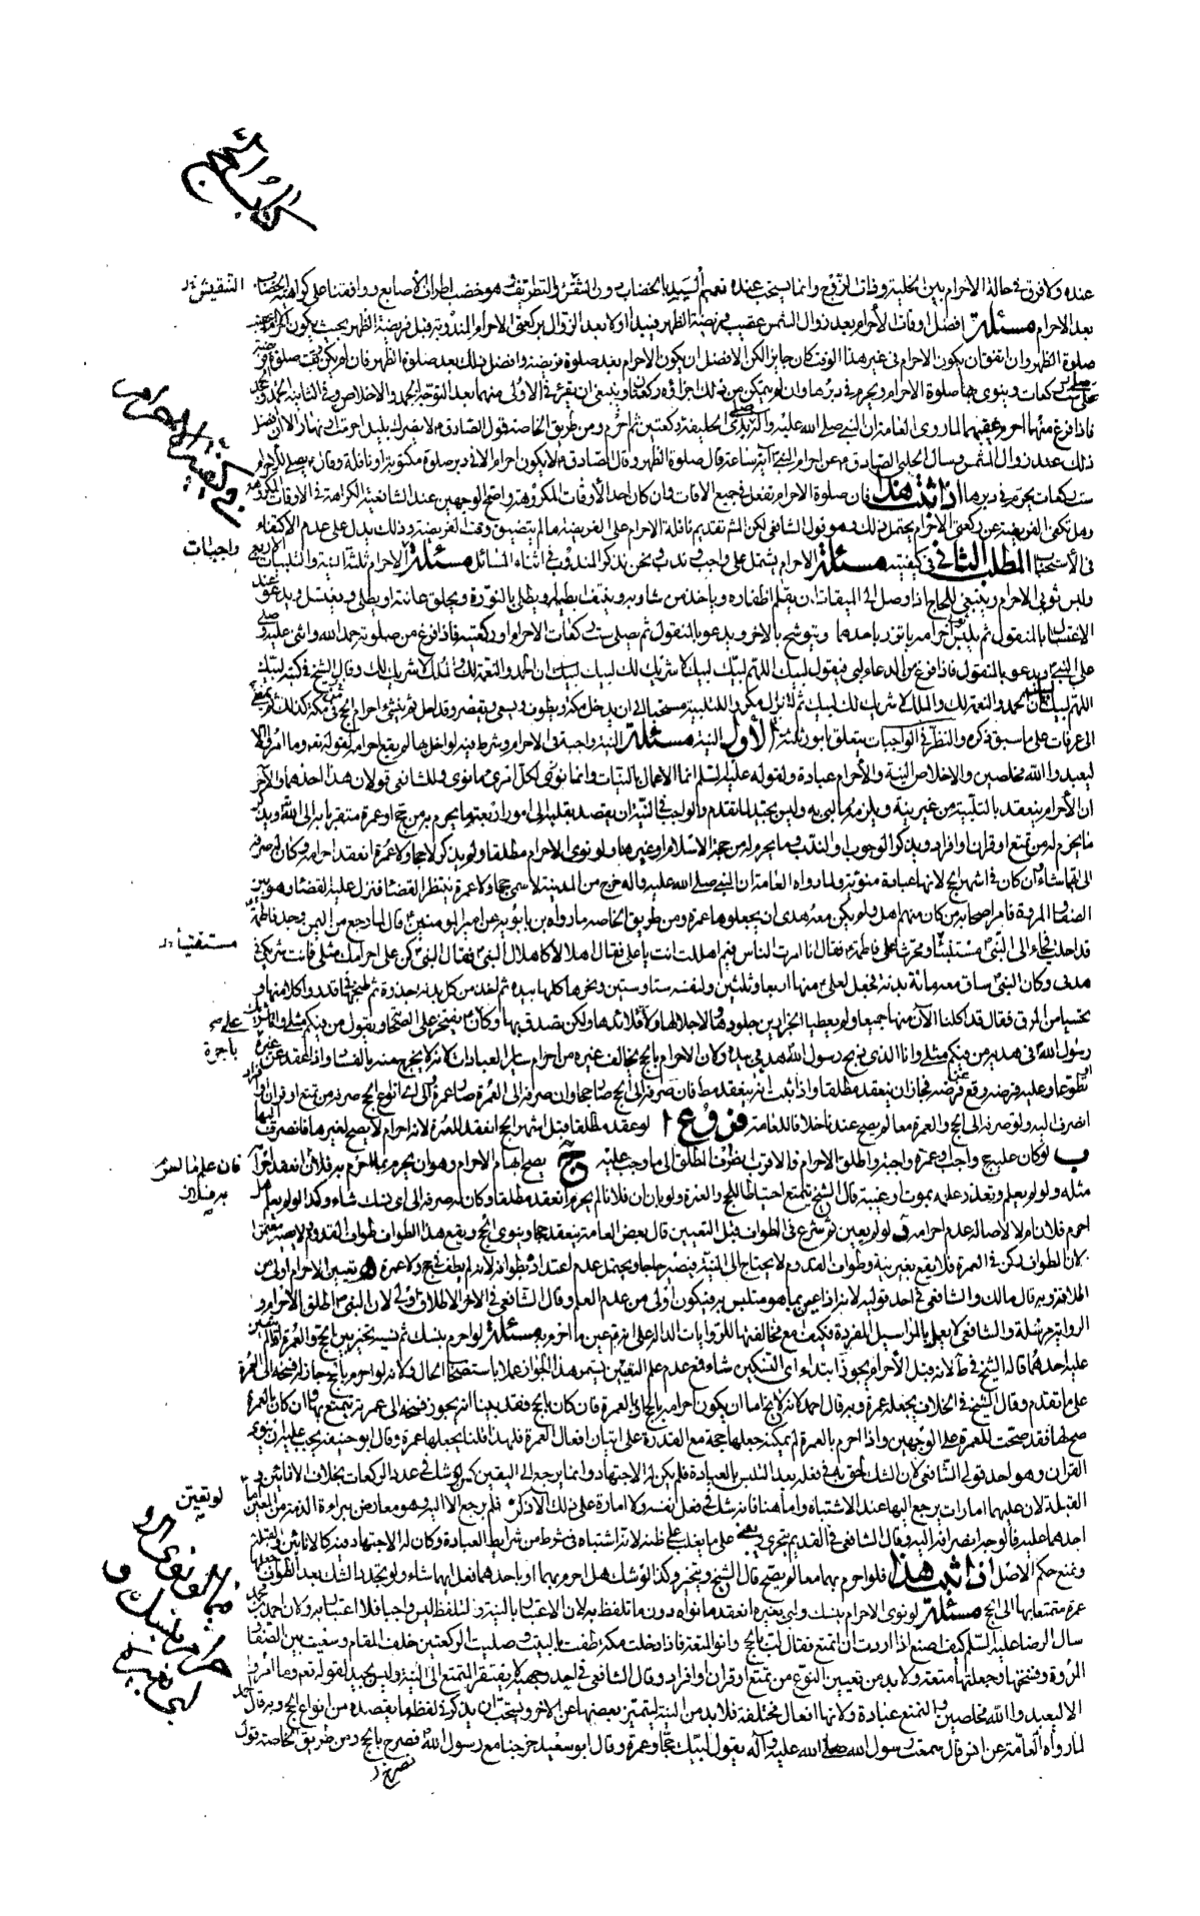 كتاب الحج
عنده ولا فرق في حالة الاحرام بين الخلية وذات الزوج وانما يستحب عنده تعميم اليد بالخضاب دون النقش والتطريف وهو خضب اطراف الاصابع ووافقنا على كراهية الخضاب
بعد الاحرام مسئلة افضل اوقات الاحرام بعد زوال الشمس عقيب فريضة الظهر فيبدأ اولا بعد الزوال بركعتي الاحرام المندوبة قبل فريضة الظهر بحيث يكون الاحرام عقيب
صلوة الظهر وان اتفق ان يكون الاحرام في غير هذا الوقت كان جايزا لكن الافضل ان يكون الاحرام بعد صلوة فريضة وافضل ذلك بعد صلوة الظهر فان لم يكن وقت صلوة فريضة
صلى ست ركعات وينوي بها صلوة الاحرام ويحرم في دبرها وان لم يتمكن من ذلك اجزأه ركعتان وينبغي ان يقرء في الاولى منهما بعد التوجه الحمد والاخلاص وفي الثانية الحمد والجحد
فاذا فرغ منهما احرم عقيبهما لما روى العامة ان النبي صلى الله عليه وآله صلى بذي الحليفة ركعتين ثم احرم ومن طريق الخاصة قول الصادق ع لا يضرك بليل احرمت او نهار الا ان افضل
ذلك عند زوال الشمس وسأل الحلبي الصادق ع عن احرام النبي ص اية ساعة قال صلوة الظهر وقال الصادق ع لا يكون احرام الا في دبر صلوة مكتوبة او نافلة وقال ع يصلى للاحرام
ست ركعات يحرم في دبرها اذا ثبت هذا فان صلوة الاحرام تفعل في جميع الاوقات وان كان احد الاوقات المكروهة واصح الوجهين عند الشافعية الكراهة في الاوقات المكروهة
وهل تكفي الفريضة عن ركعتي الاحرام يحتمل ذلك وهو قول الشافعي لكن المشهور تقديم نافلة الاحرام على الفريضة ما لم يتضيق وقت الفريضة وذلك يدل على عدم الاكتفاء
في الاستحباب المطلب الثاني في كيفيته مسئلة الاحرام يشتمل على واجب وندب ونحن نذكر المندوب في اثناء المسائل مسئلة الاحرام ثلثة النية والتلبيات الاربع
ولبس ثوبي الاحرام وينبغي للحاج اذا وصل الى الميقات ان يقلم اظفاره وياخذ من شاربه وينتف ابطيه او يطلي بالنورة ويحلق عانته او يطلي ويغتسل ويدعو عند
الاغتسال بالمنقول ثم يلبس ثوبي احرامه ياتزر باحدهما ويتوشح بالآخر ويدعو بالمنقول ثم يصلي ست ركعات الاحرام او ركعتيه فاذا فرغ من صلوته حمد الله واثنى عليه وصلى
على النبي ص ويدعو بالمنقول فاذا فرغ من الدعاء لبى فيقول لبيك اللهم لبيك لبيك لا شريك لك لبيك ان الحمد والنعمة لك والملك لا شريك لك وقال الشيخ في كتبه لبيك
اللهم لبيك لبيك ان الحمد والنعمة لك والملك لا شريك لك لبيك ثم لا يزال مكررا للتلبية مستحبا الى ان يدخل مكة ويطوف ويسعى ويقصر وقد احل ثم ينشئ احرام الحج من مكة كذلك ثم يمضي
الى عرفات على ما سبق ذكره والنظر في الواجبات يتعلق بامور ثلثة الاول النية مسئلة النية واجبة في الاحرام وشرط فيه لو اخل بها لم يقع احرامه لقوله تعالى وما امروا الا
ليعبدوا الله مخلصين والاخلاص النية والاحرام عبادة ولقوله عليه السلم انما الاعمال بالنيات وانما لكل امرئ ما نوى وللشافعي قولان هذا احدهما والآخر
ان الاحرام ينعقد بالتلبية من غير نية ويلزمه ما لبى به وليس بجيد لما تقدم والواجب في النية ان يقصد بقلبه الى امور اربعة ما يحرم به من حج او عمرة متقربا به الى الله ويذكر
ما يحرم له من تمتع او قران او افراد ويذكر الوجوب او الندب وما يحرم له من حجة الاسلام او غيرها ولو نوى الاحرام مطلقا ولم يذكر لا حجا ولا عمرة انعقد احرامه وكان له صرفه
الى ايهما شاء ان كان في اشهر الحج لانها عبادة منوية ولما رواه العامة ان النبي صلى الله عليه وآله خرج من المدينة لا يسمي حجا ولا عمرة ينتظر القضاء فنزل عليه القضاء وهو بين
الصفا والمروة فامر اصحابه من كان منهم اهل ولم يكن معه هدي ان يجعلوها عمرة ومن طريق الخاصة ما رواه ابن بابويه عن امير المؤمنين ع قال لما رجع من اليمن وجد فاطمة ع
قد احلت فجاء الى النبي ص مستفتيا ومحرشا على فاطمة ع فقال انا امرت الناس فبم اهللت انت يا علي فقال اهلالا كاهلال النبي ص فقال النبي ص كن على احرامك مثلي فانت شريكي في
هديي وكان النبي ص ساق معه مائة بدنة فجعل لعلي ع منها اربعا وثلثين ولنفسه ستا وستين ونحرها كلها بيده ثم اخذ من كل بدنة جذوة ثم طبخها في قدر واكلا منها و
تحسيا من المرق فقال قد اكلنا الآن منها جميعا ولم يعطيا الجزارين جلودها ولا جلالها ولا قلائدها ولكن تصدق بها وكان ع يفتخر على الصحابة ويقول من فيكم مثلي وانا شريك
رسول الله ص في هديه من فيكم مثلي وانا الذي ذبح رسول الله ص هديي بيده ولان الاحرام بالحج يخالف غيره من احرام ساير العبادات لانه لا يخرج منه بالفساد واذا عقد عن غيره
تطوعا وعليه فرضه وقع عن فرضه فجاز ان ينعقد مطلقا واذا ثبت انه ينعقد مطلقا فان صرفه الى الحج صار حجا وان صرفه الى العمرة صار عمرة والى اي انواع الحج صرفه من تمتع او قران او افراد
انصرف اليه ولو صرفه الى الحج والعمرة معا لم يصح عندنا خلافا للعامة فروع ا لو عقده مطلقا قبل اشهر الحج انعقد للعمرة لانه احرام لا يصح لغيرها فانصرف اليها
ب لو كان عليه حج واجب وعمرة واجبة واطلق الاحرام فالاقرب انصراف المطلق الى ما وجب عليه ج يصح ابهام الاحرام وهو ان يحرم بما احرم به فلان
مثله ولو لم يعلم وتعذر علمه بموت او غيبة قال الشيخ يتمتع احتياطا للحج والعمرة ولو بان ان فلانا لم يحرم انعقد مطلقا وكان له صرفه الى اي نسك شاء وكذا لو لم يعلم هل
احرم فلان ام لا لاصالة عدم احرامه د لو لم يعين ثم شرع في الطواف قبل التعيين قال بعض العامة ينعقد حجا وينوي الحج ويقع هذا الطواف طواف القدوم
لان الطواف ركن في العمرة فلا يقع بغير نية وطواف القدوم لا يحتاج الى النية فيصير حاجا ويحتمل عدم اعتداده بطوافه لانه لم يطف في حج ولا عمرة ه تعيين الاحرام اولى من
اطلاقه وبه قال مالك والشافعي في احد قوليه لانه اذا عين علم ما هو متلبس به فيكون اولى من عدم العلم وقال الشافعي في الآخر الاطلاق اولى لان النبي ص اطلق الاحرام و
الرواية مرسلة والشافعي لا يعمل بالمراسيل المفردة فكيف مع مخالفتها للروايات الدالة على انه ع عين ما احرم به مسئلة لو احرم بنسك ثم نسيه تخير بين الحج والعمرة اذا لم يتعين
عليه احدهما قاله الشيخ في ط لانه قبل الاحرام يجوز له ابتداء اي النسكين شاء فمع عدم علم التعيين يستمر هذا الجواز عملا باستصحاب الحال ولانه لو احرم بالحج جاز له فسخه الى العمرة
على ما تقدم وقال الشيخ في الخلاف يجعله عمرة وبه قال احمد لانه لا يخ اما ان يكون احرامه بالحج او العمرة فان كان بالحج فقد بينا انه يجوز فسخه الى عمرة يتمتع بها وان كان بالعمرة
صح لها فقد صحت له العمرة على الوجهين واذا احرم بالعمرة لم يمكنه جعلها حجة مع القدرة على اتيان افعال العمرة فلهذا قلنا يجعلها عمرة وقال ابو حنيفة يجب عليه ان ينوي
القران وهو احد قولي الشافعي لان الشك لحق به في فعله بعد التلبس بالعبادة فلم يكن له الاجتهاد وانما يرجع الى اليقين كما لو شك في عدد الركعات بخلاف الاناءين و
القبلة لان عليهما امارات يرجع اليها عند الاشتباه واما هنا فانه شك في فعل نفسه ولا امارة على ذلك الا ذكره فلم يرجع الا اليه وهو معارض ببراءة الذمة
احدهما عليه فالوجه انصرافه اليه وقال الشافعي في القديم يتحرى ويبني على ما يغلب على ظنه لانه اشتباه في شرط من شرايط العبادة وكان له الاجتهاد فيه كالاناءين والقبلة
ونمنع حكم الاصل اذا ثبت هذا فلو احرم بهما معا لم يصح قال الشيخ ويتخير وكذا لو شك هل احرم بهما او باحدهما فعل ايهما شاء ولو تجدد الشك بعد الطواف جعلها
عمرة متمتعا بها الى الحج مسئلة لو نوى الاحرام بنسك ولبى بغيره انعقد ما نواه دون ما تلفظ به لان الاعتبار بالنية والتلفظ ليس واجبا فلا اعتبار به ولان احمد بن محمد
سأل الرضا عليه السلم كيف اصنع اذا اردت ان اتمتع فقال لب بالحج وانو المتعة فاذا دخلت مكة طفت بالبيت وصليت الركعتين خلف المقام وسعيت بين الصفا و
المروة وفسختها وجعلتها متعة ولا بد من تعيين النوع من تمتع او قران او افراد وقال الشافعي في احد وجهيه لا يفتقر التمتع الى النية وليس بجيد لقوله تعالى وما امروا
الا ليعبدوا الله مخلصين والتمتع عبادة ولانها افعال مختلفة فلا بد من النية ليتميز بعضها عن الآخر ويستحب ان يذكر في لفظه ما يقصده من انواع الحج وبه قال احمد
لما رواه العامة عن انس قال سمعت رسول الله صلى الله عليه وآله يقول لبيك حجا وعمرة وقال ابو سعيد خرجنا مع رسول الله ص نصرخ بالحج ومن طريق الخاصة قول
نصرخ
النقش
واجبات
مستفتيا
باجرة
لو تعين
فيما لو نوى الاحرام بنسك و
لبى بغيره